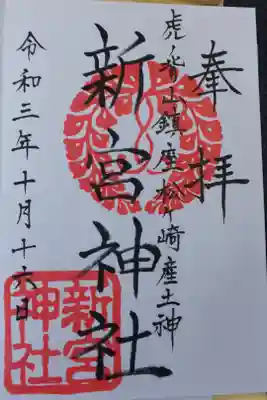 奉拝
虎ノ山鎮座松ヶ崎産土神
新宮神社
令和三年十月十六日
新宮
神社